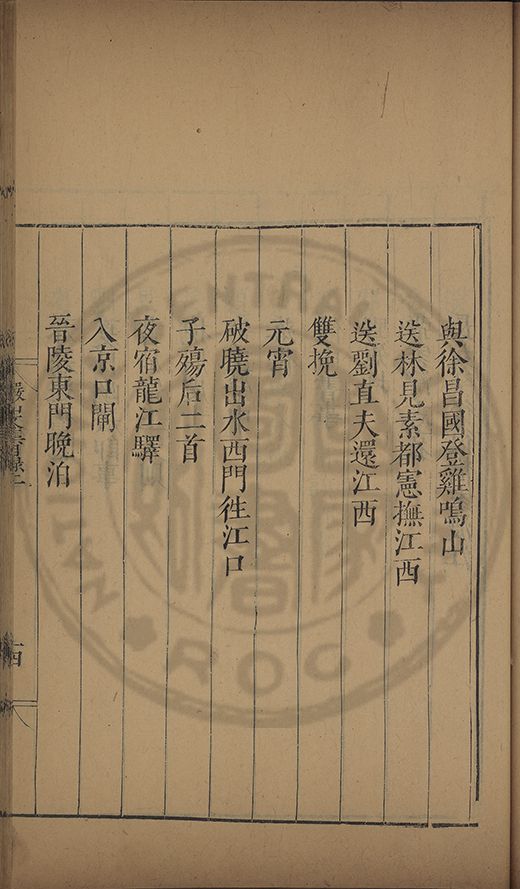 與徐昌國登雞鳴山
送林見素都憲撫江西
送劉直夫還江西
雙挽
元宵
破曉出水西門徃江口
子殤后二首
夜宿龍江驛
入京口閘
晉陵東門晚泊